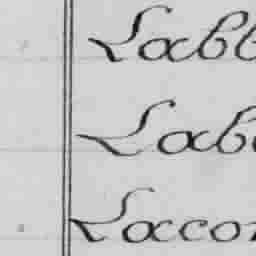 Labb
Lab
Lacco